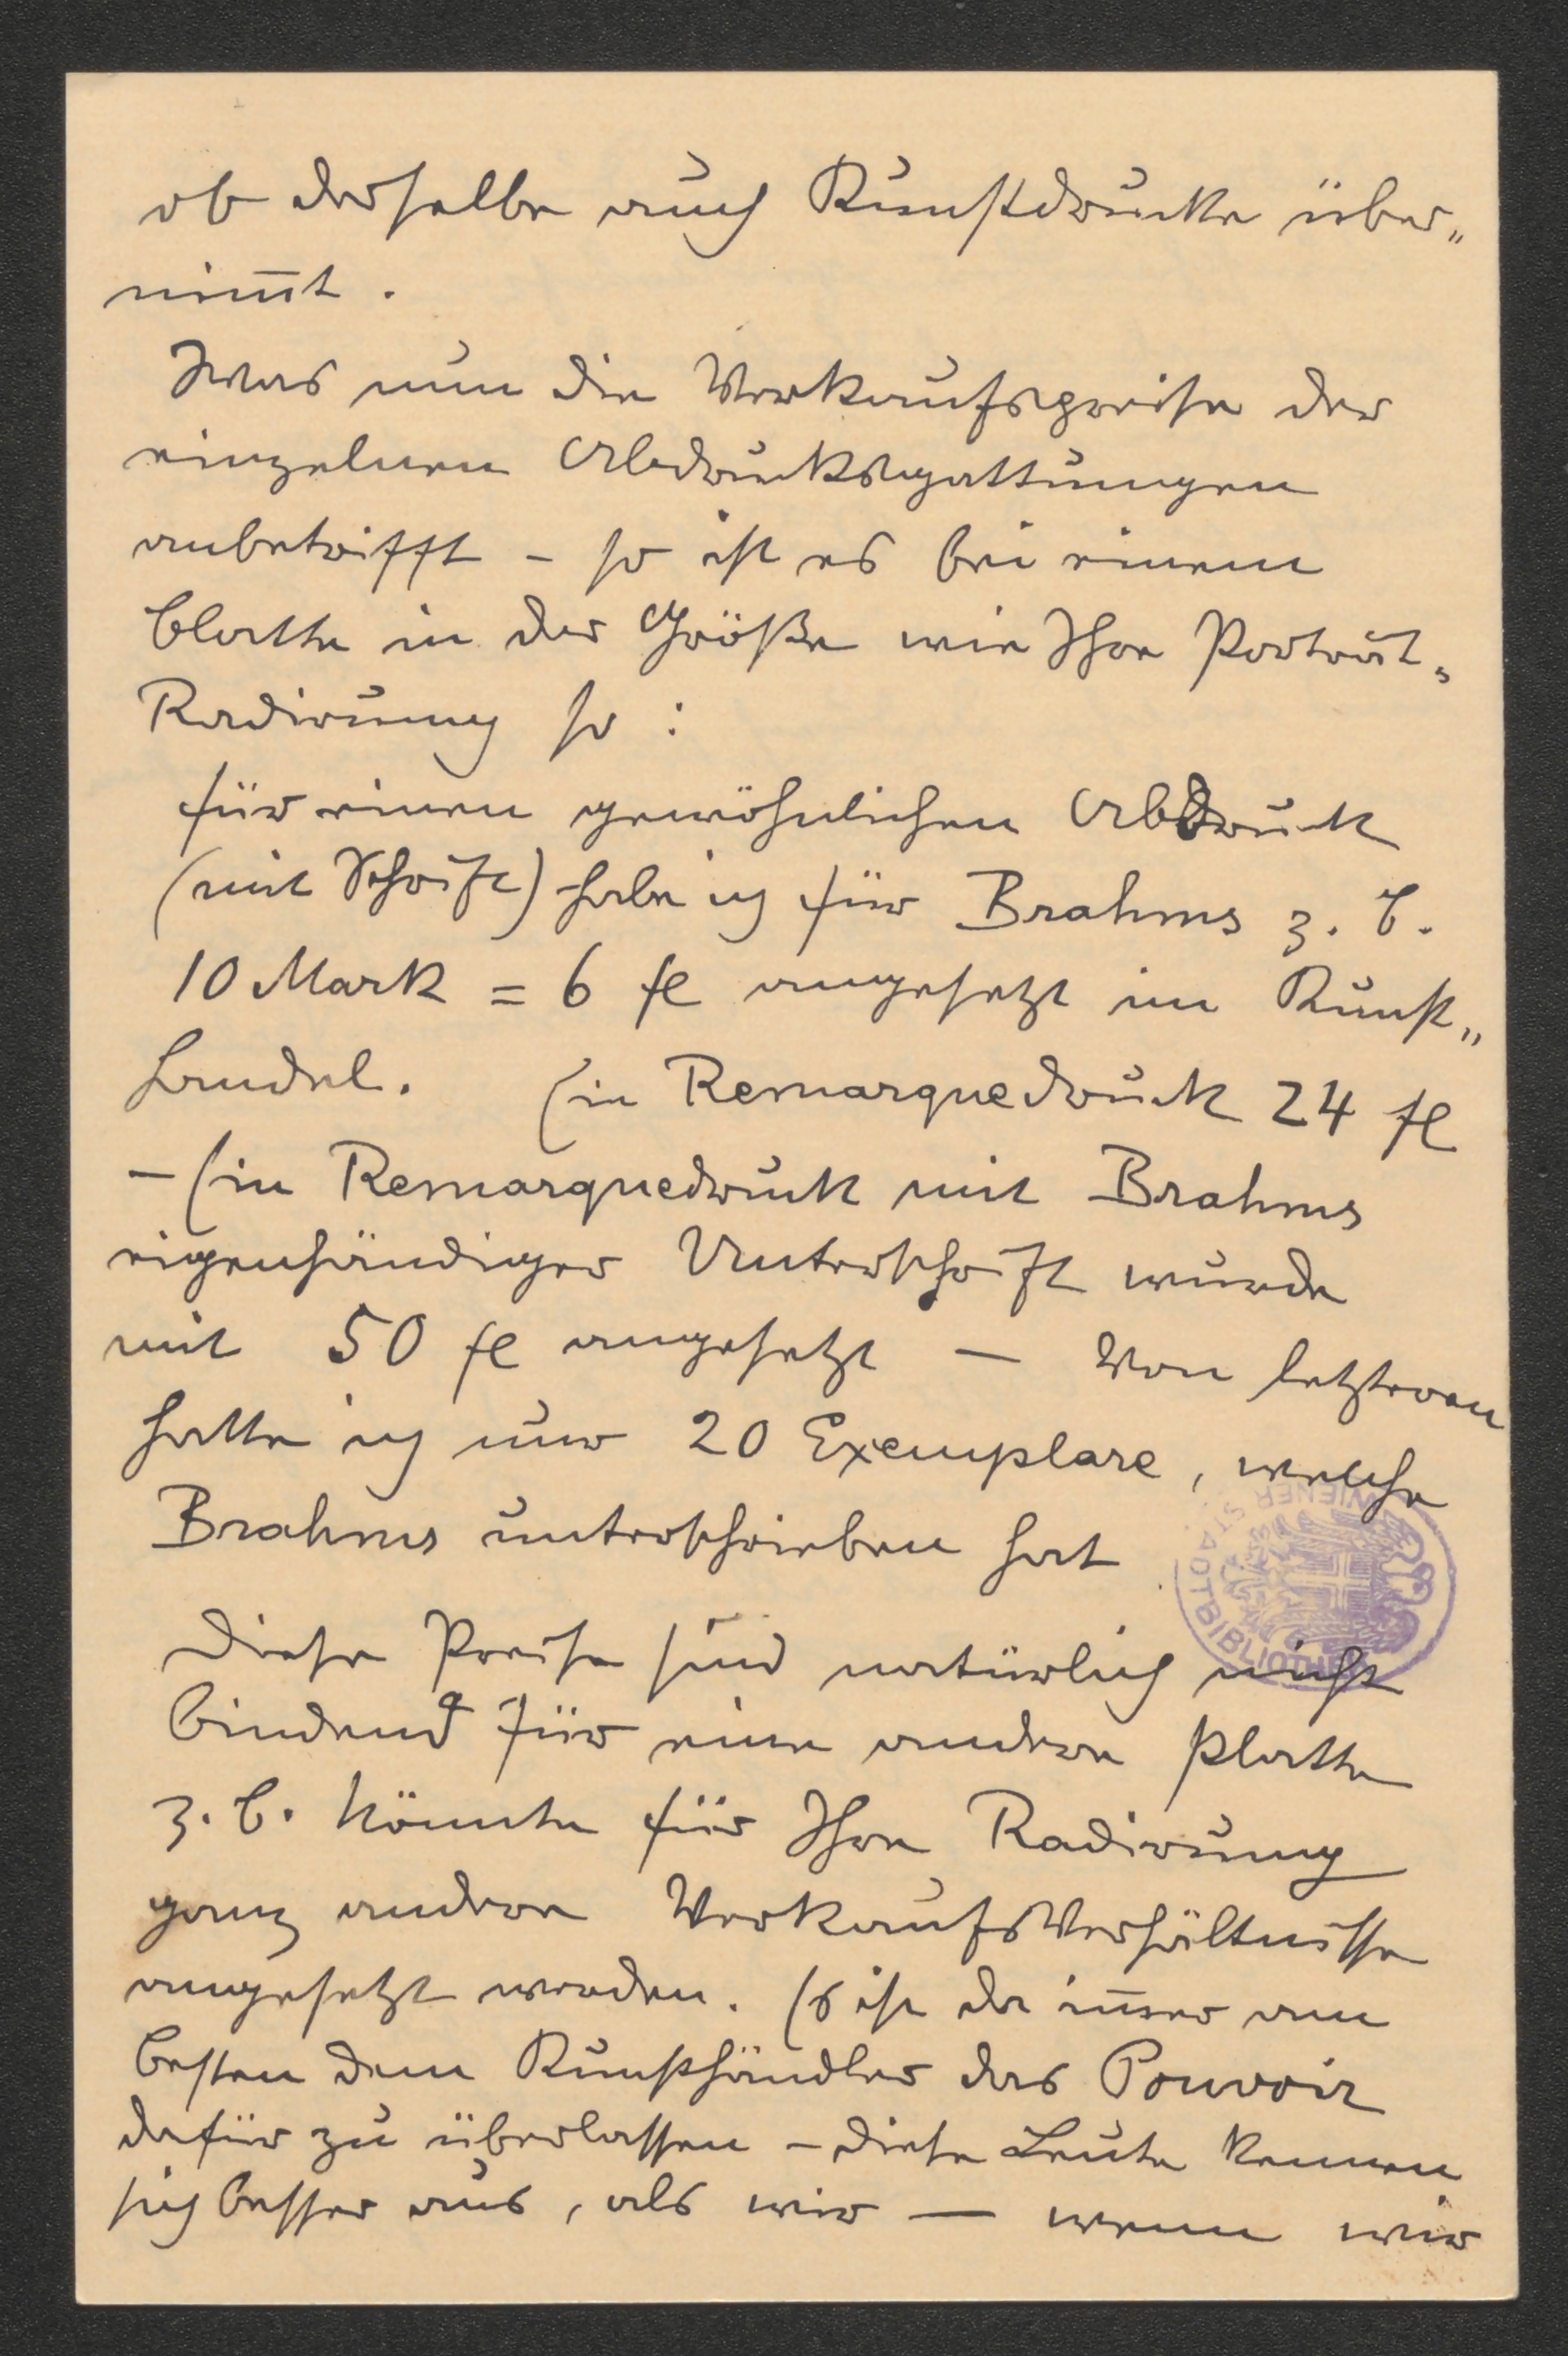 ob derselbe auch Kunstdrucke über„
nim̅t.
Was nun die Verkaufspreise der
einzelnen Abdrucksgattungen
anbetrifft – so ist es bei einem
Blatte in der Größe wie Ihre Porträt„
Radirung so :
für einen gewöhnlichen Abdruck
(mit Schrift) habe ich für Brahms z. B.
10 Mark = 6 fl angesetzt im Kunst„
handel. Ein Remarquedruck 24 fl
– Ein Remarquedruck mit Brahms
eigenhändiger Unterschrift wurde
mit 50 fl angesetzt — Von letzteren
hatte ich nur 20 Exemplare, welche
Brahms unterschrieben hat
WIENER STADTBIBLIOTHEK
Diese Preise sind natürlich nicht
bindend für eine andere Platte
z. B. könnte für Ihre Radirung
ganz andere Verkaufsverhältnisse
angesetzt werden. Es ist da im̅er am
besten dem Kunsthändler das Pouvoir
dafür zu überlassen – diese Leute kennen
sich besser aus, als wir — wenn wir